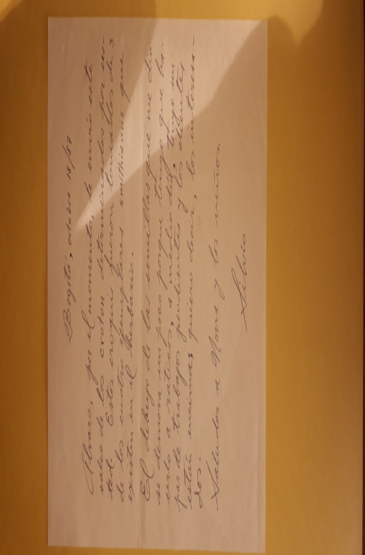 Bogotá, octubre 18/87
Alvaro, por el momento, le envío este
calco de los croton determinados por us-
ted. Estos croquis fueron tomados de 3
de los cuatro ejemplares smithianus que
existen en el herbario.
El dibujo de las semillas que me dio
se demora un poco porque tengo que ha-
cerlo a raticos, a medio día, tengo un
par de trabajos pendientes y los clientes
están encima; quiero decir, los interesa-
dos.
Saludos a Nora y los niños.
Silvio